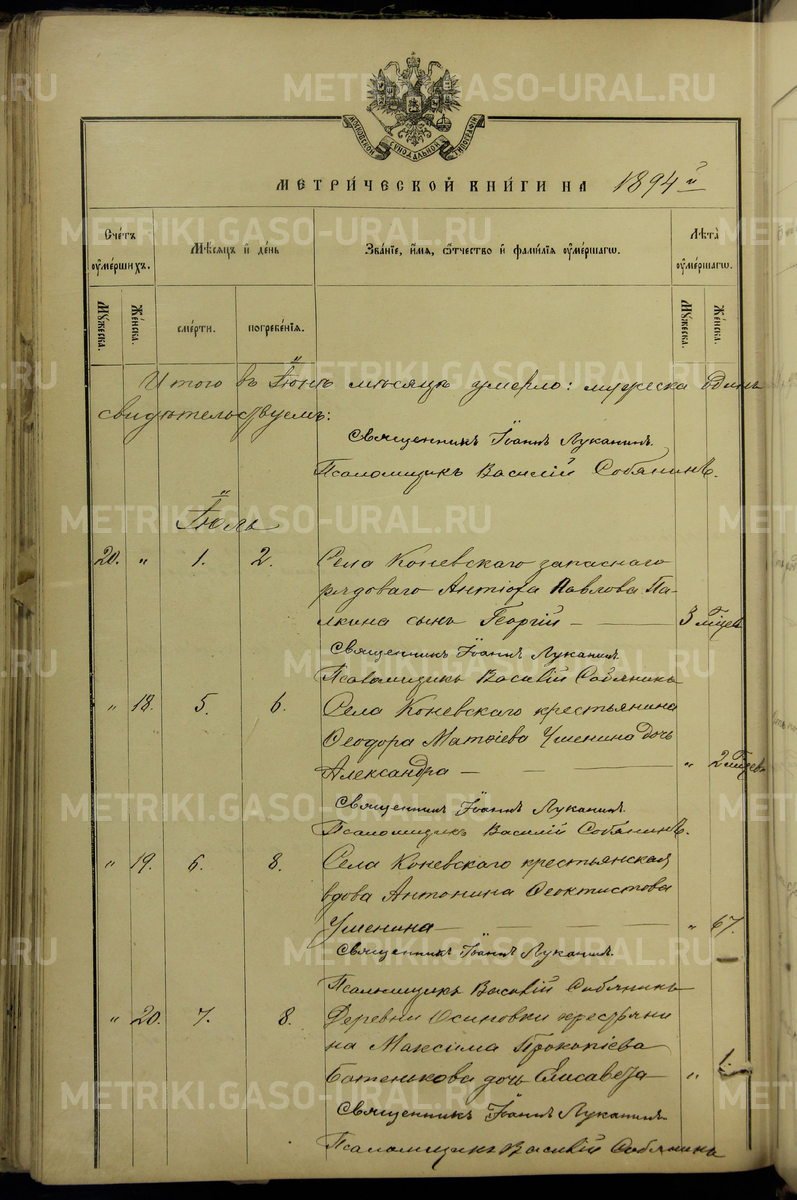 METRIKI.GASO-URAL.RU
МОСКОВСКОЙ СѴНОДАЛЬНОЙ ТИПОГРАФІИ
МЕТРИ́ЧЕСКОЙ КНИ́ГИ НА 1894й
Сче́тъ ᲂу҆ме́ршихъ.
Мѣ́сяцъ и҆ де́нь
Зва́нїе, и҆́мя, ѻ҆́тчество и҆ фами́лїя ᲂу҆ме́ршагѡ.
Лѣ́та ᲂу҆ме́ршагѡ.
Мꙋ́жеска.
Же́нска.
сме́рти.
погребе́нїя.
Мꙋ́жеска.
Же́нска.
Итого въ Іюнѣ мѣсяцѣ умерло: мужеска одинъ
свидѣтельствуемъ:
Священникъ Іоаннъ Луканинъ.
Псаломщикъ Василій Собянинъ.
Іюль
20. " 1. 2. Села Коневскаго запаснаго
рядоваго Антіоха Павлова Па-
лкина сынъ Георгій — 3 мѣсец.
Священникъ Іоаннъ Луканинъ.
Псаломщикъ Василій Собянинъ
" 18. 5. 6. Села Коневскаго крестьянина
Ѳеодора Матѳіева Уменина дочь
Александра — " 2 мѣсец.
Священникъ Іоаннъ Луканинъ.
Псаломщикъ Василій Собянинъ.
" 19. 6. 8. Села Коневскаго крестьянская
вдова Антонина Ѳеоктистова
Уменина — " 67.
Священникъ Іоаннъ Луканинъ.
Псаломщикъ Василій Собянинъ
" 20. 7. 8. Деревни Осиновки крестьяни
на Максима Прокопіева
Батенькова дочь Елисавета "
Священникъ Іоаннъ Луканинъ.
Псаломщикъ Василій Собянинъ